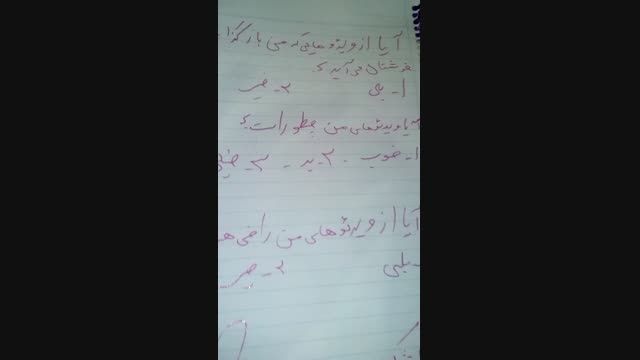 آیا از ویدئوهایی که من بارگذا
خوشتان می‌آید؟
۱- بلی ۲- خیر
ویدیوهای من چطور است؟
۱- خوب - ۲- بد - ۳-
آیا از ویدئوهای من راضی ه
- بلی ۲- خیر